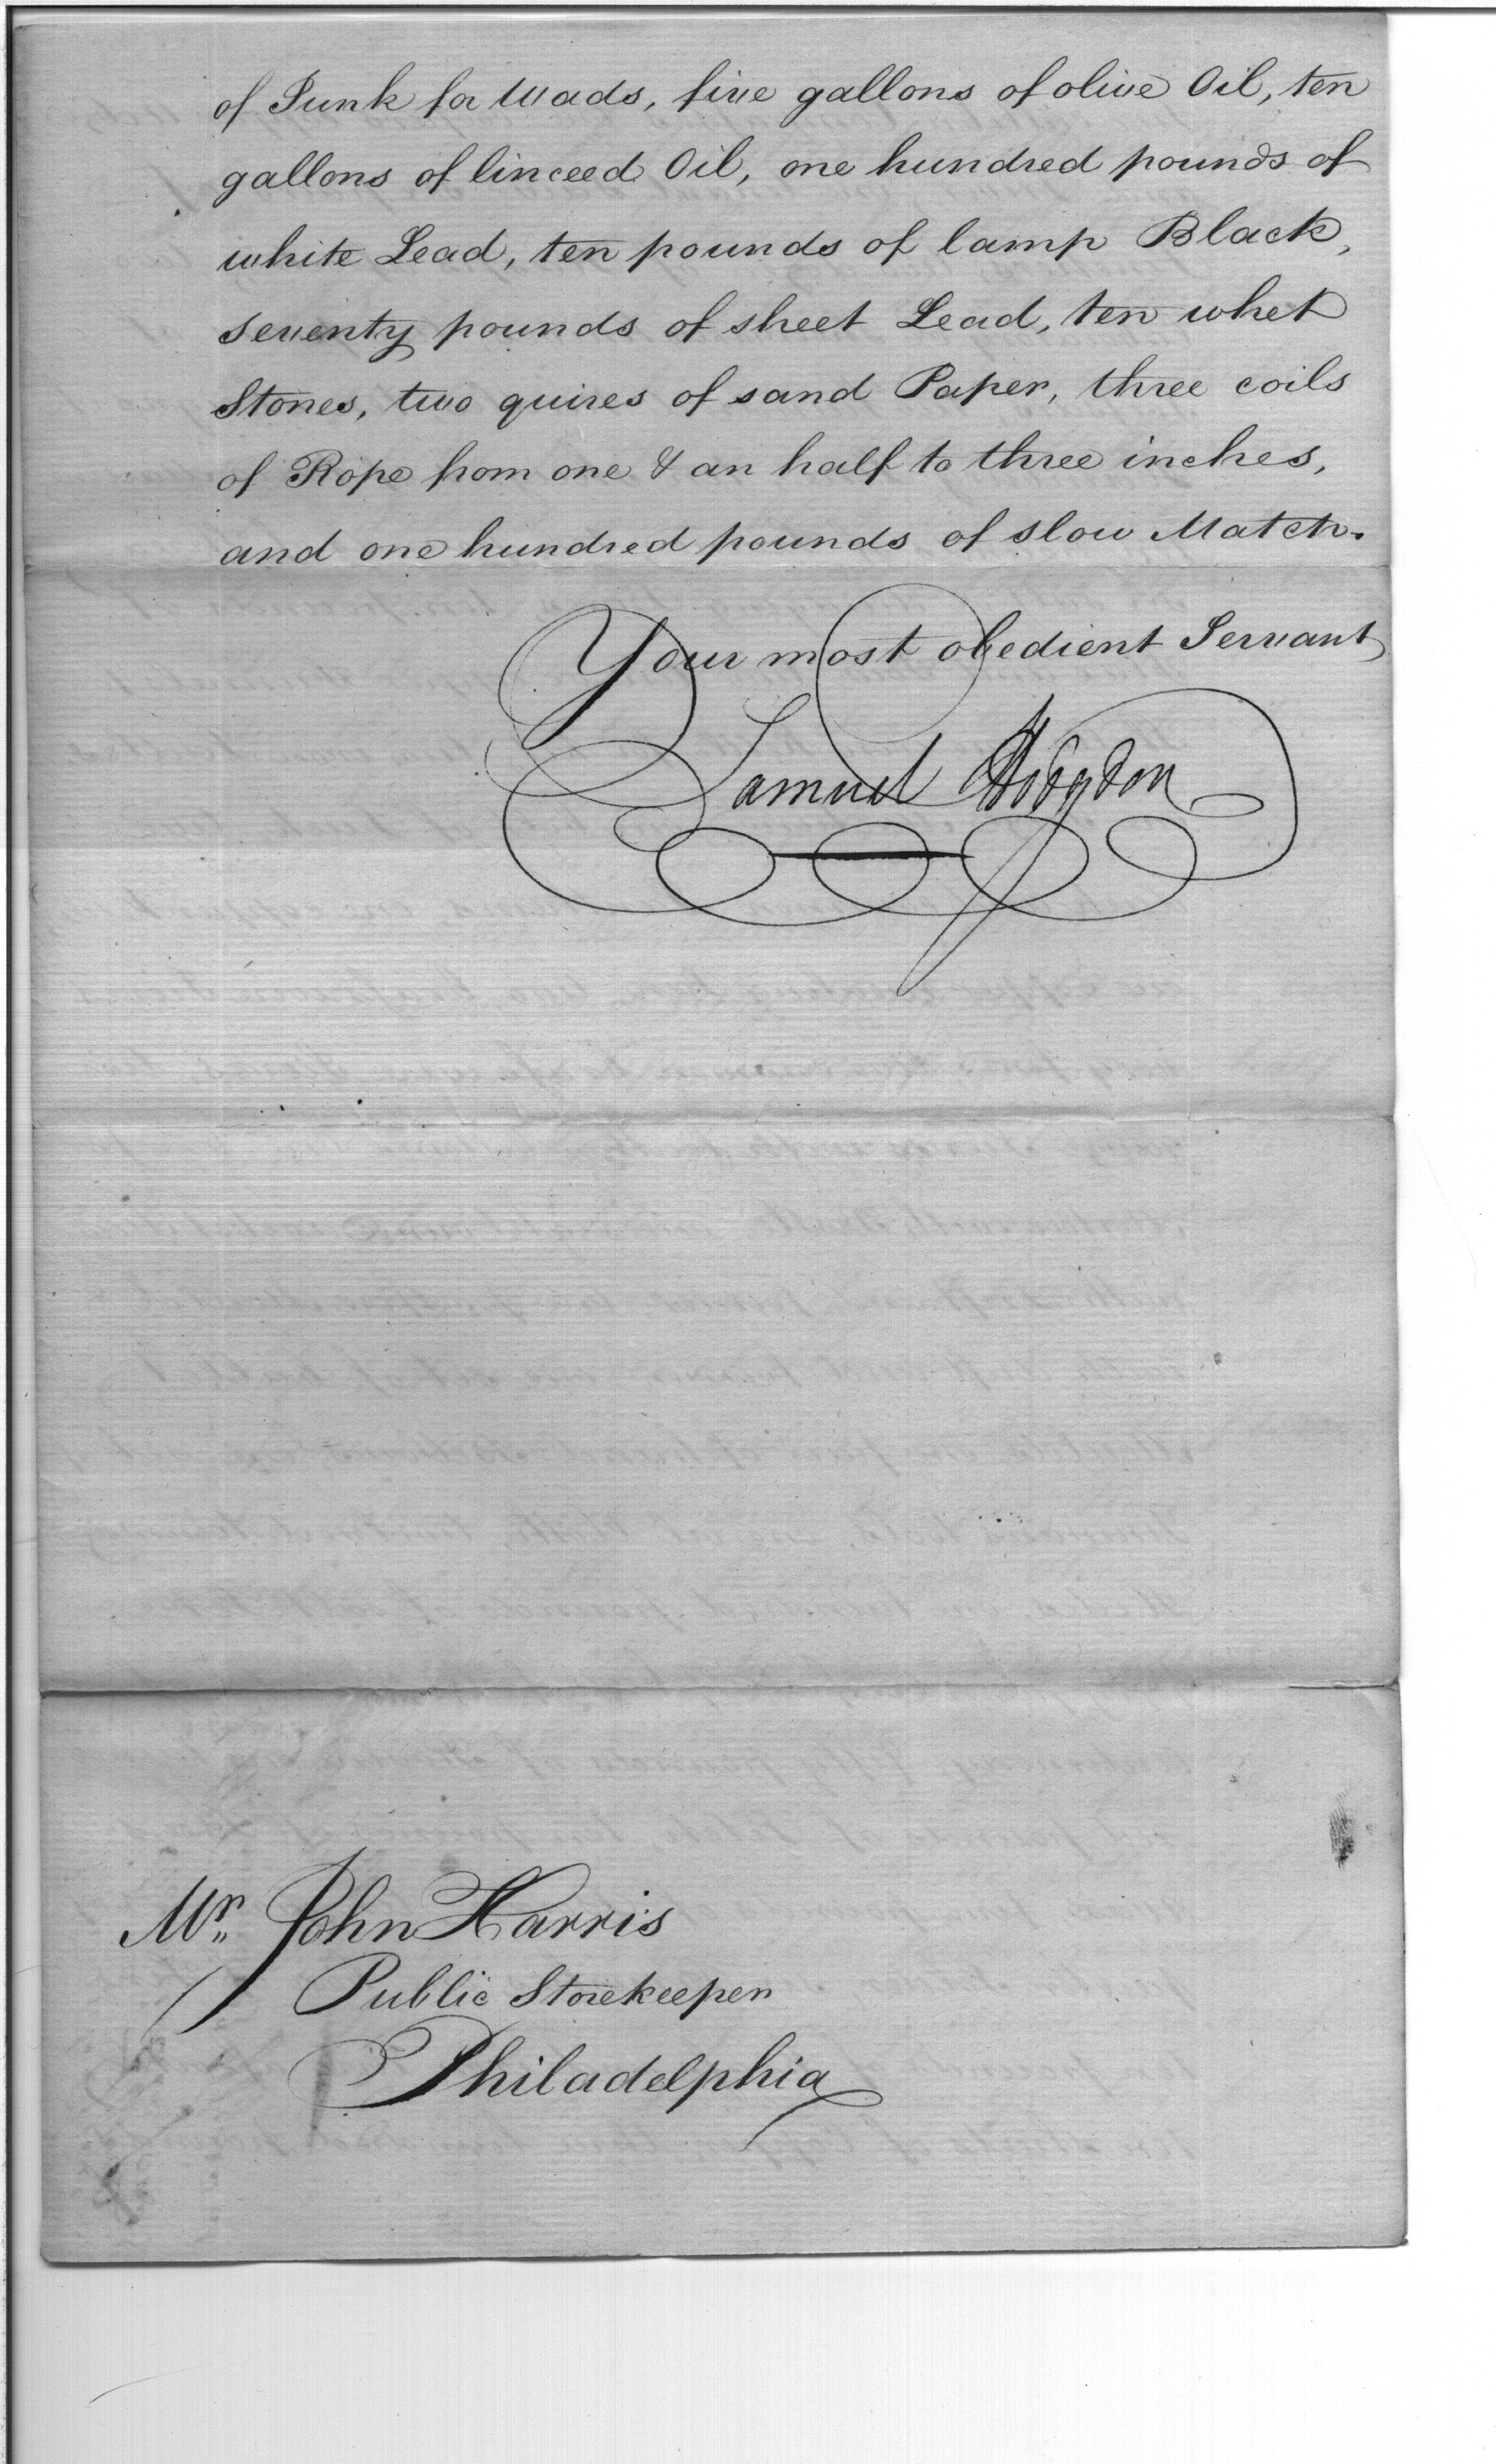 of Junk for Wads, five gallons of olive Oil, ten
gallons of linceed Oil, one hundred pounds of
white Lead, ten pounds of lamp Black,
seventy pounds of sheet Lead, ten whet
Stones, two quires of sand Paper, three coils
of Rope from one & an half to three inches,
and one hundred pounds of slow Match.
Your most obedient Servant
Samuel Hodgdon
Mr. John Harris
Public Storekeeper
Philadelphia